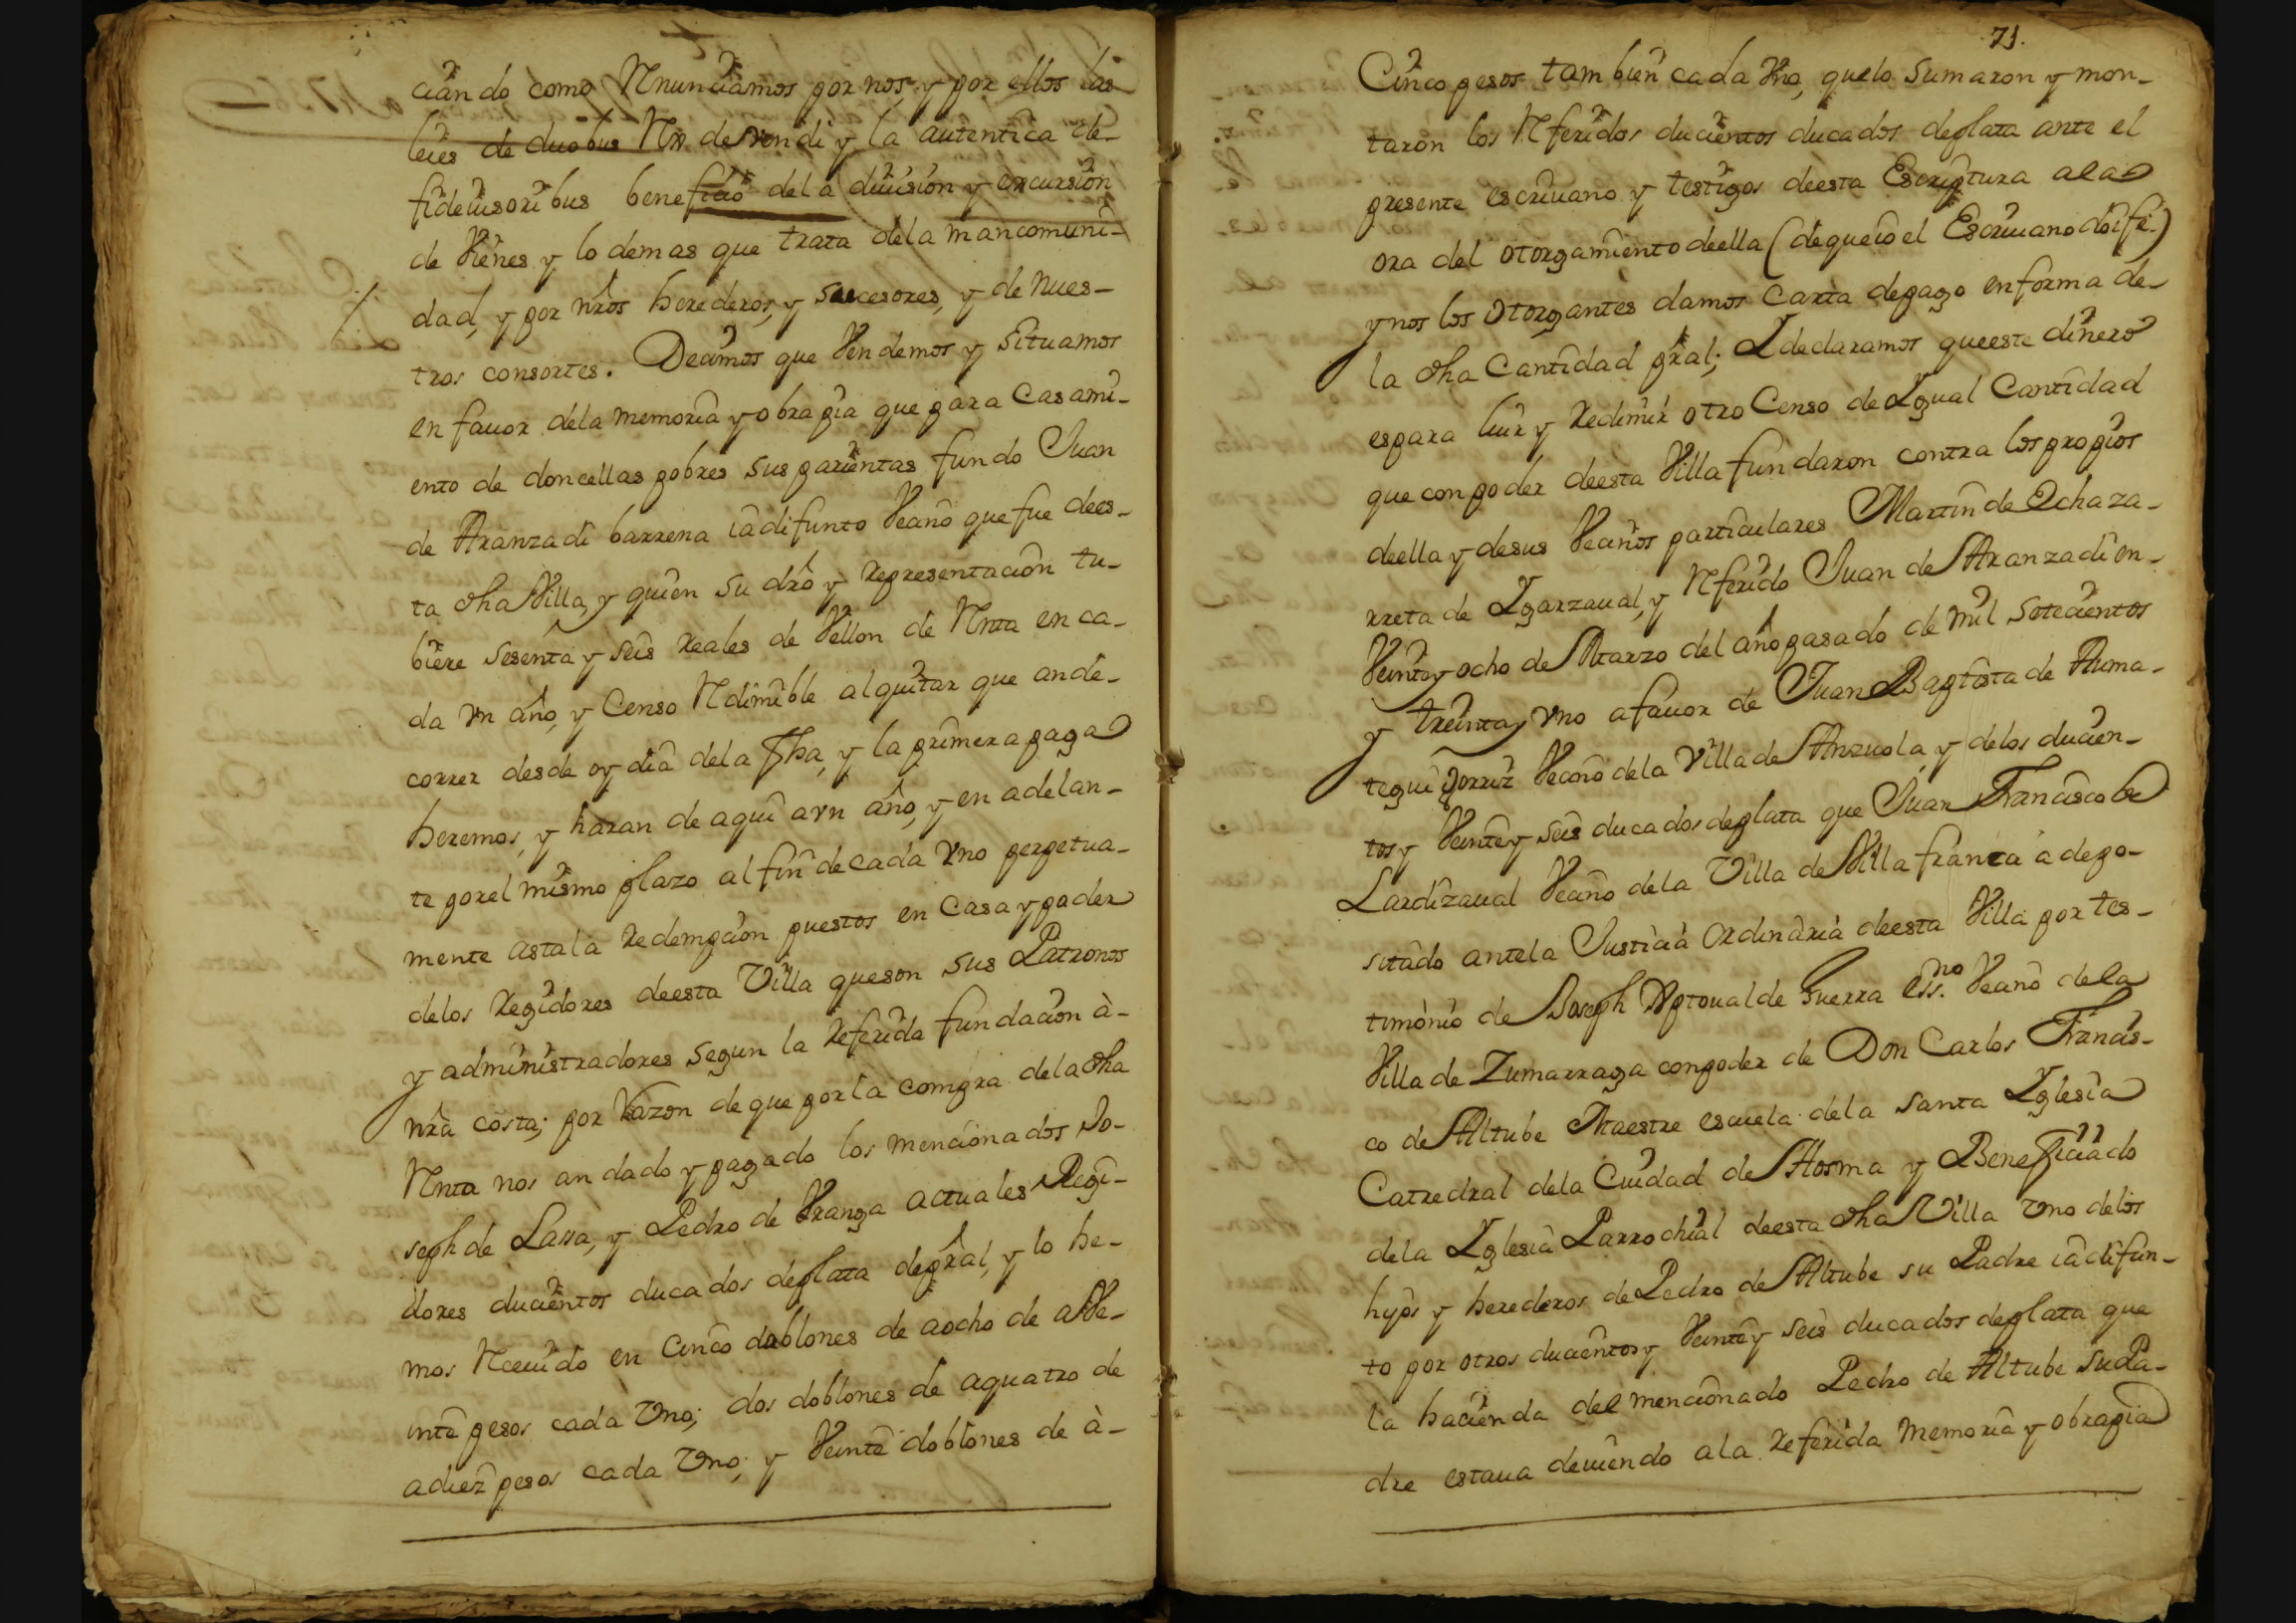 ciando como Renunciamos por nos, y por ellos las
leies de duobus Res devendi y la autentica de
fideiusoribus beneficio dela diuision y excursion
de Vienes y lo demas que trata dela mancomuni-
dad, y por nr̃os herederos, y succesores, y de nues-
tros consortes. Decimos que Vendemos y situamos
en fauor dela memoria y obra pia que para Casami-
ento de doncellas pobres sus parientas fundo Juan
de Aranzadi barrena ia difunto Vecino que fue dees-
ta dha Villa, y quien su dr̃o y representacion tu-
biere sesenta y seis reales de Vellon de Renta en ca-
da vn año, y Censo Redimible alquitar que ande
correr desde oy dia dela fha, y la primera paga
heremos, y haran de aqui a vn año, y en adelan-
te por el mismo plazo al fin de cada vno perpetua-
mente asta la redempcion puestos en Casa y poder
delos regidores deesta Villa que son sus Patronos
y administradores segun la referida fundacion à
nr̃a costa; por Razon de que por la compra dela dha
Renta nos an dado y pagado los mencionados Jo-
seph de Lasa, y Pedro de Vranga actuales Regi-
dores ducientos ducados de plata de pr̃al, y lo he-
mos Receuido en Cinco doblones de aocho de aVe-
inte pesos cada Vno; dos doblones de aquatro de
adiez pesos cada Vno; y Veinte doblones de à
71.
Cinco pesos tambien cada Vno, quelo sumaron y mon-
taron los Referidos ducientos ducados de plata ante el
presente escriuano y testigos deesta Escriptura ala
ora del otorgamiento deella (de que io el Escriuano doi fe)
y nos los otorgantes damos Carta de pago en forma de
la dha Cantidad pr̃al; I declaramos que este dinero
es para luir y redimir otro Censo de Igual Cantidad
que con poder deesta Villa fundaron contra los propios
deella y de sus Vecinos particulares Martin de Ochaza-
rreta de Igarzaual, y Referido Juan de Aranzadi en
Veinte y ocho de Marzo del año pasado de mil setecientos
y treinta y vno a fauor de Juan Baptista de Auma-
tegui Jorriz Vecino dela Villa de Anzuola, y delos ducien-
tos y Veinte y seis ducados de plata que Juan Francisco de
Lardizaual Vecino dela Villa de Villafranca a depo-
sitado ante la Justicia Ordinaria deesta Villa por tes-
timonio de Joseph Aptoualde Guerra ess.no Vecino dela
Villa de Zumarraga con poder de Don Carlos Francis-
co de Altube Maestre escuela dela santa Iglesia
Catredral dela Ciudad de Hosma y Beneficiado
dela Iglesia Parrochial deesta dha Villa Vno delos
hijos y herederos de Pedro de Altube su Padre ia difun-
to por otros ducientos y Veinte y seis ducados de plata que
la hacienda del mencionado Pedro de Altube su Pa-
dre estaua deuiendo ala referida memoria y obra pia